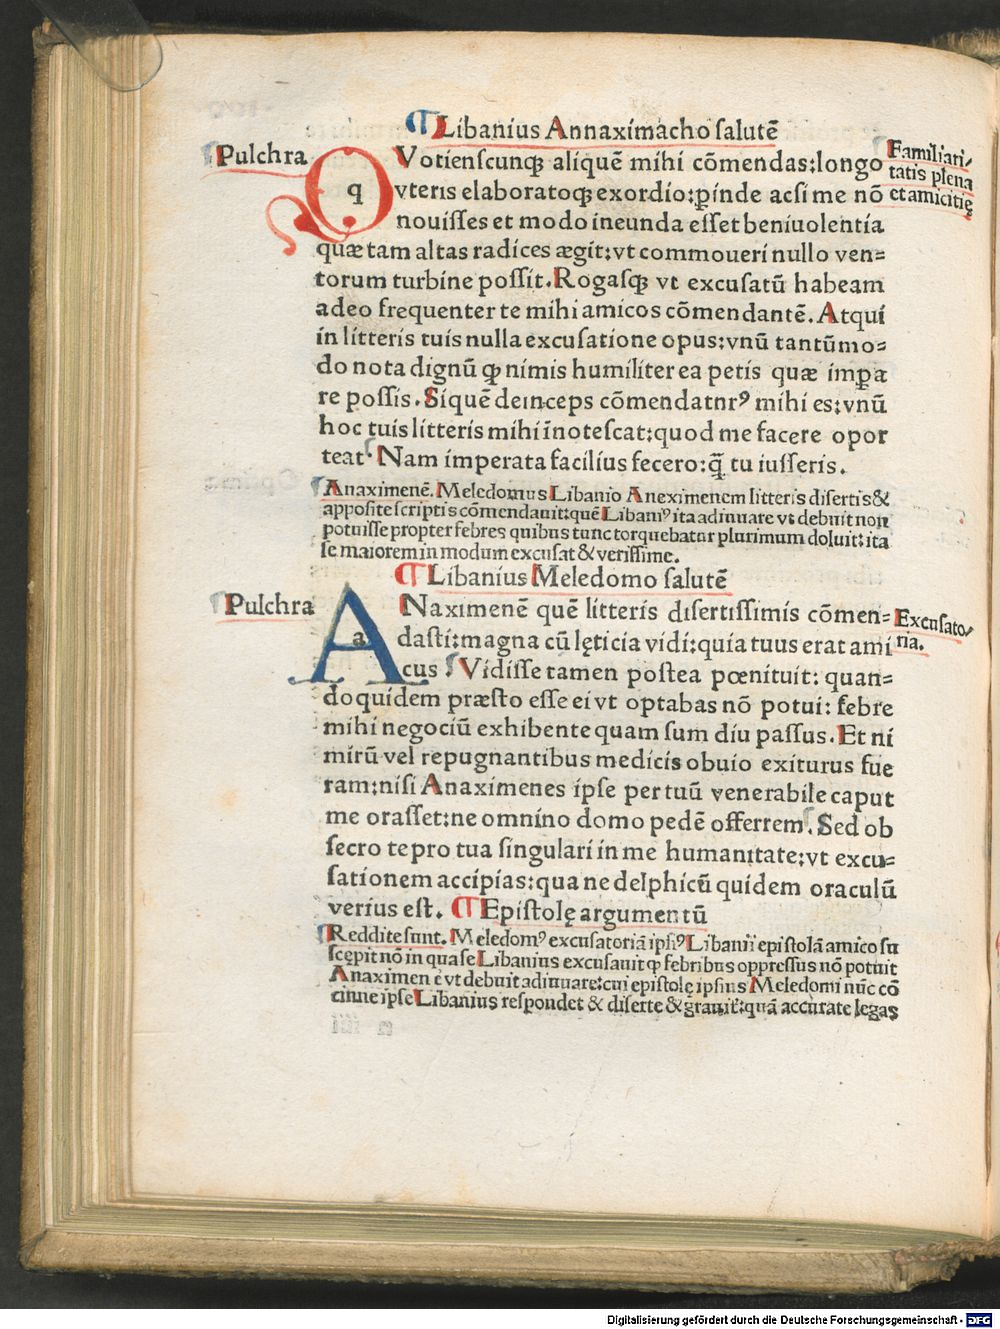 ¶ Libanius Annaximacho salutē
Pulchra
QVotienscunqȝ aliquē mihi cōmendas:longo
Familiari-
tatis plena
et amicitię
vteris elaboratoqȝ exordio:ꝑinde acsi me nō
nouisses et modo ineunda esset beniuolentia
quæ tam altas radices ægit:vt commoueri nullo ven=
torum turbine possit. Rogasqȝ vt excusatū habeam
adeo frequenter te mihi amicos cōmendantē. Atqui
in litteris tuis nulla excusatione opus:vnū tantūmo=
do nota dignū ꝙ nimis humiliter ea petis quæ imꝑa
re possis. Siquē deinceps cōmendatnrꝰ mihi es:vnū
hoc tuis litteris mihi īnotescat:quod me facere opor
teat. Nam imperata facilius fecero:q̄ tu iusseris.
Anaximenē. Meledomus Libanio Aneximenem litteris disertis &
apposite scriptis cōmendauit:quē Libaniꝰ ita adiuuare vt debuit non
potuisse propter febres quibus tunc torquebatur plurimum doluit:ita
se maiorem in modum excusat & verissime.
¶ Libanius Meledomo salutē
Pulchra
ANaximenē quē litteris disertissimis cōmen=
Excusato-
ria.
dasti:magna cū lęticia vidi:quia tuus erat ami
cus. Vidisse tamen postea pœnituit: quan=
doquidem præsto esse ei vt optabas nō potui: febre
mihi negociū exhibente quam sum diu passus. Et ni
mirū vel repugnantibus medicis obuio exiturus fue
ram:nisi Anaximenes ipse per tuū venerabile caput
me orasset:ne omnino domo pedē offerrem. Sed ob
secro te pro tua singulari in me humanitate:vt excu=
sationem accipias:qua ne delphicū quidem oraculū
verius est. ¶ Epistolę argumentū
Reddite sunt. Meledomꝰ excusatoriā ipsiꝰ Libanii epistolā amico su
scępit nō in qua se Libanius excusauit ꝙ febribus oppressus nō potuit
Anaximenē vt debuit adiuuare:cui epistolę ipsius Meledomi nūc cō
cinne ipse Libanius respondet & diserte & grauit̄:quā accurate legas
Digitalisierung gefördert durch die Deutsche Forschungsgemeinschaft - DFG